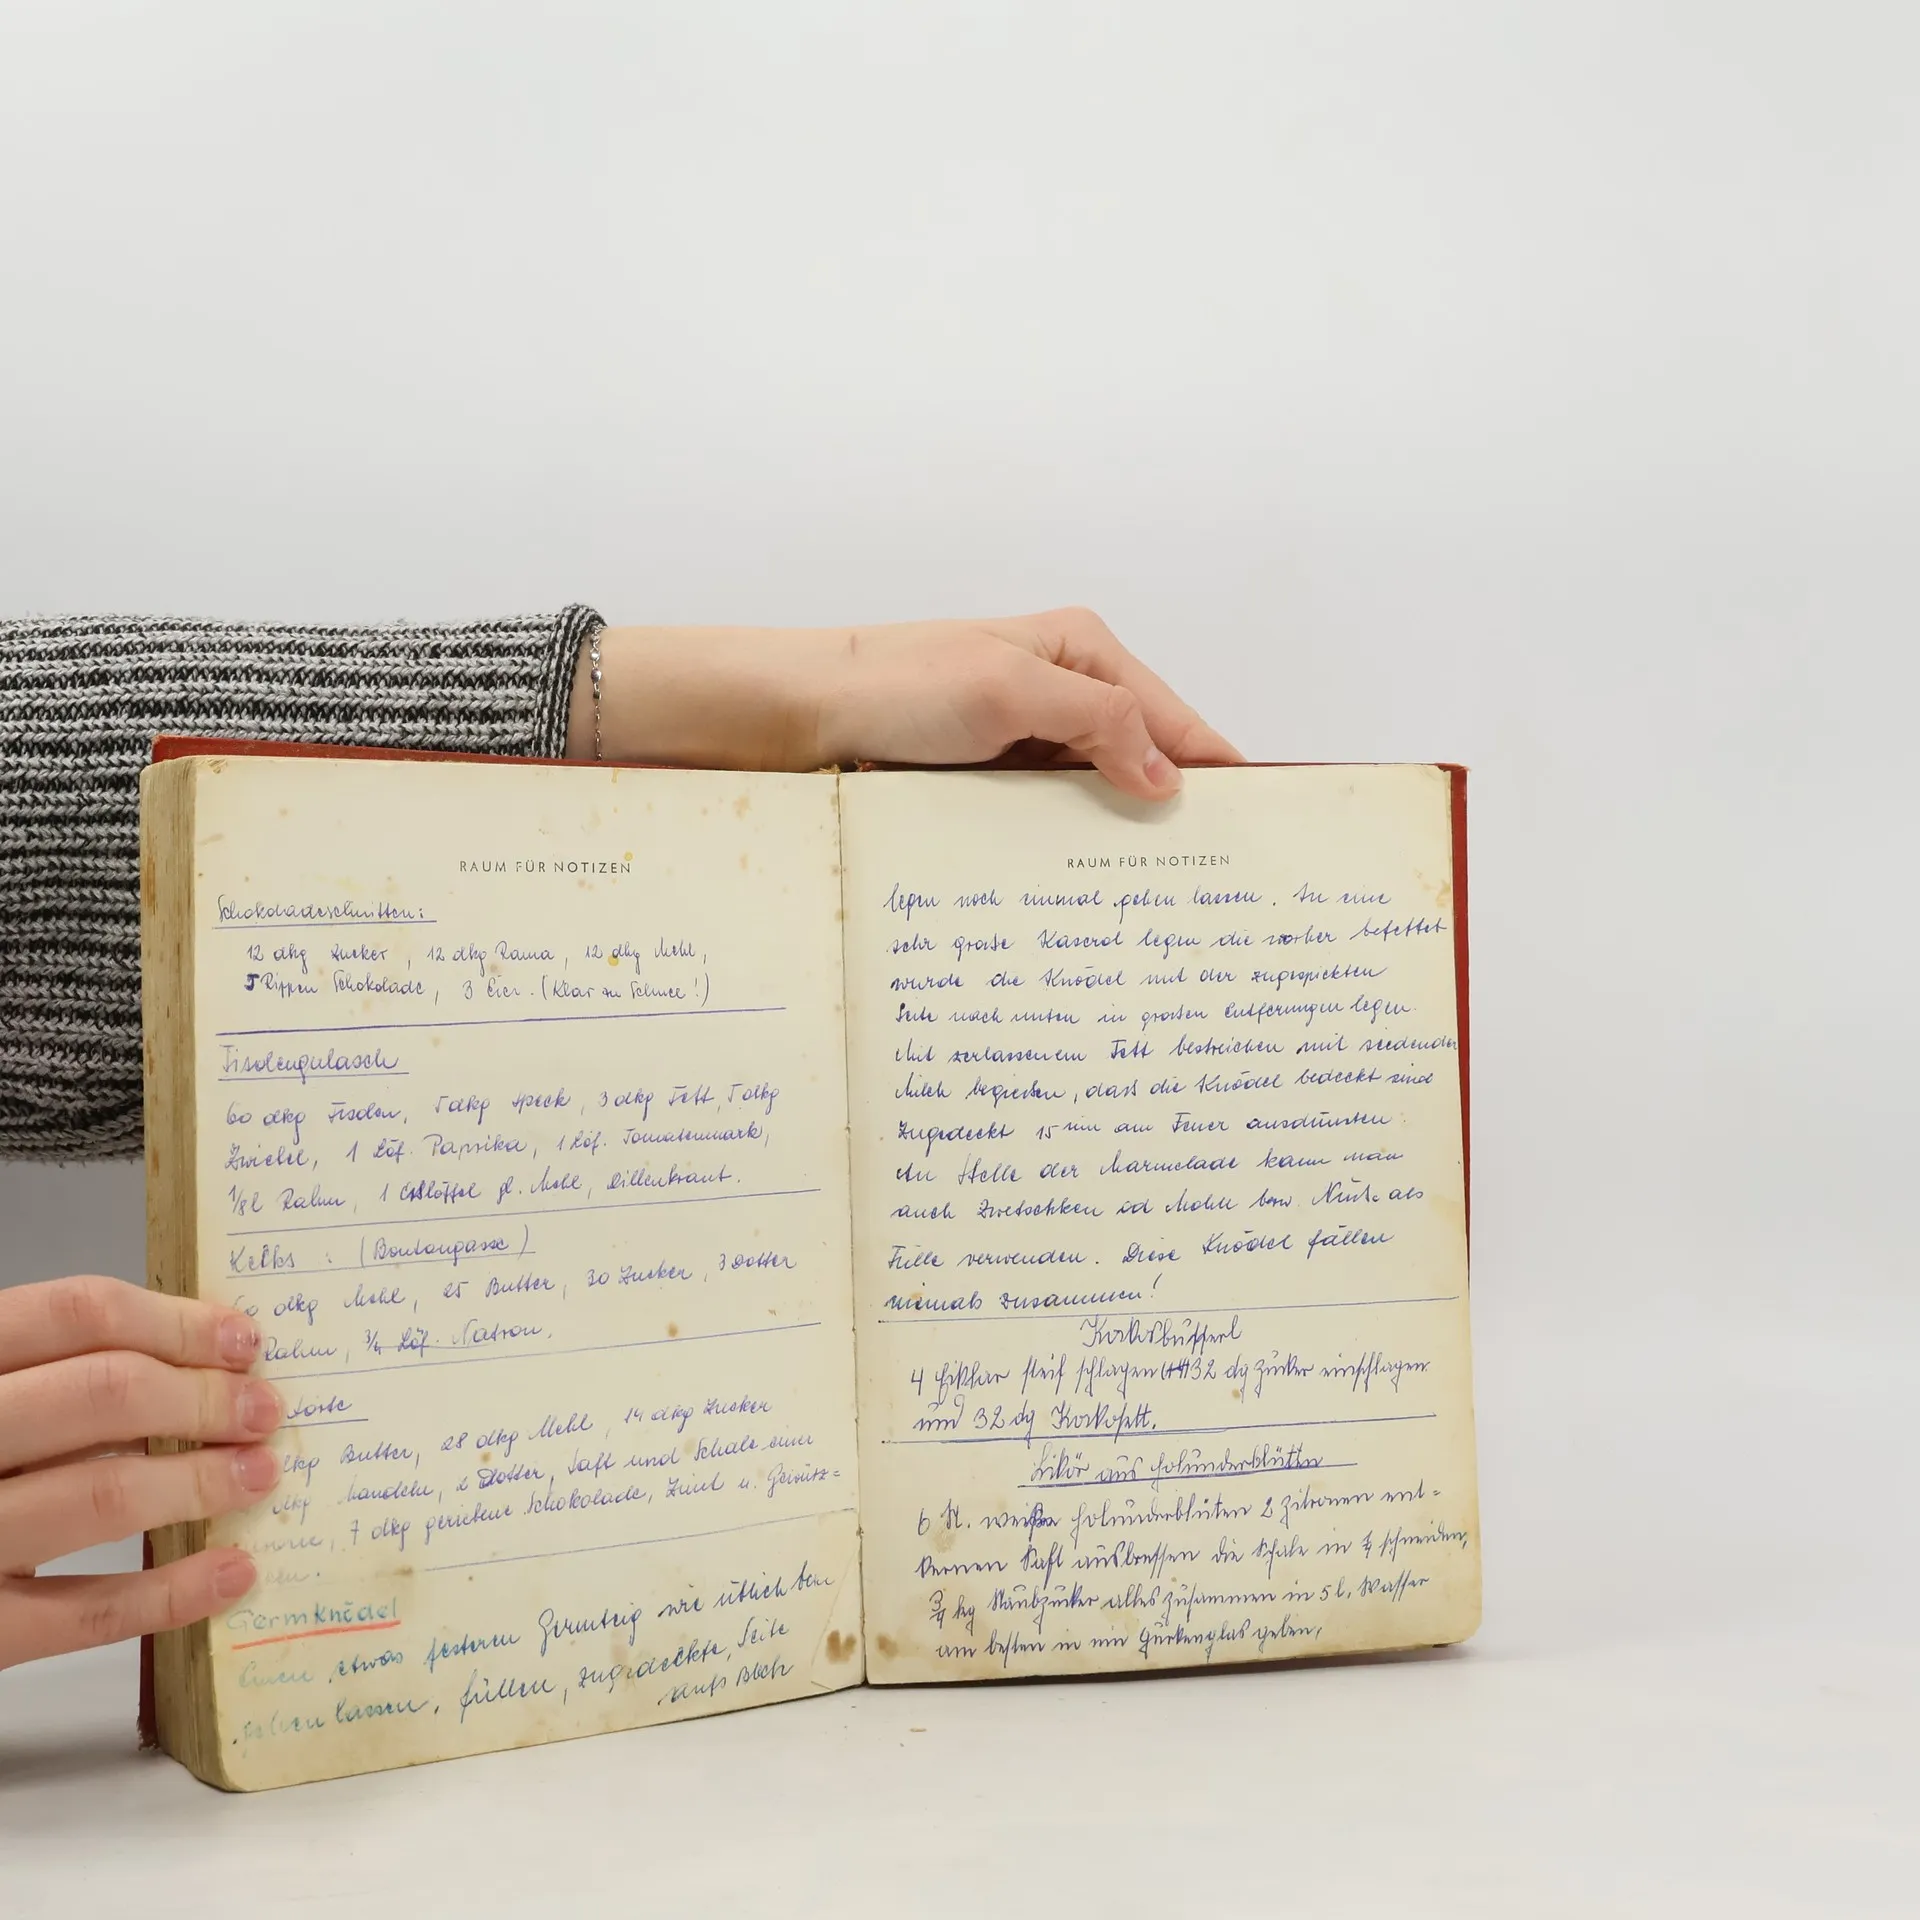 RAUM FÜR NOTIZEN
Schokoladeschnitten:
12 dkg Zucker, 12 dkg Rama, 12 dkg Mehl,
5 Rippen Schokolade, 3 Eier. (Klar zu Schnee!)
Fisolengulasch
60 dkg Fisolen, 5 dkg Speck, 3 dkg Fett, 5 dkg
Zwiebel, 1 Löf. Paprika, 1 Löf. Tomatenmark,
1/8 l Rahm, 1 Esslöffel gl. Mehl, Dillenkraut.
Keks : (Boutongasse)
dkg Mehl, 25 Butter, 30 Zucker, 3 Dotter
Rahm, 3/4 Löf. Natron.
torte
dkg Butter, 28 dkg Mehl, 14 dkg Zucker
dkg Mandeln, 2 Dotter, Saft und Schale einer
7 dkg geriebene Schokolade, Zimt u. Gewürz=
Germknödel
Einen etwas festeren Germteig wie üblich
gehen lassen, füllen, zugedeckte, Seite
aufs Blech
RAUM FÜR NOTIZEN
legen noch einmal gehen lassen. In eine
sehr große Kaserol legen die vorher befettet
wurde die Knödel mit der zugespickten
Seite nach unten in großen Entfernungen legen.
Mit zerlassenem Fett bestreichen mit siedender
Milch begießen, dass die Knödel bedeckt sind
Zugedeckt 15 min am Feuer ausdünsten.
An Stelle der Marmelade kann man
auch Zwetschken od Mohn bzw. Nuß als
Fülle verwenden. Diese Knödel fallen
niemals zusammen!
Kokosbusserl
4 Eiklar steif schlagen 32 dg Zucker einschlagen
und 32 dg Kokosett.
Likör aus Holunderblüten
6 St. weiße Holunderblüten 2 Zitronen ent=
kernen Saft auspressen die Schale in 1/4 schneiden,
3/4 kg Staubzucker alles zusammen in 5 l. Wasser
am besten in ein Gurkenglas geben,